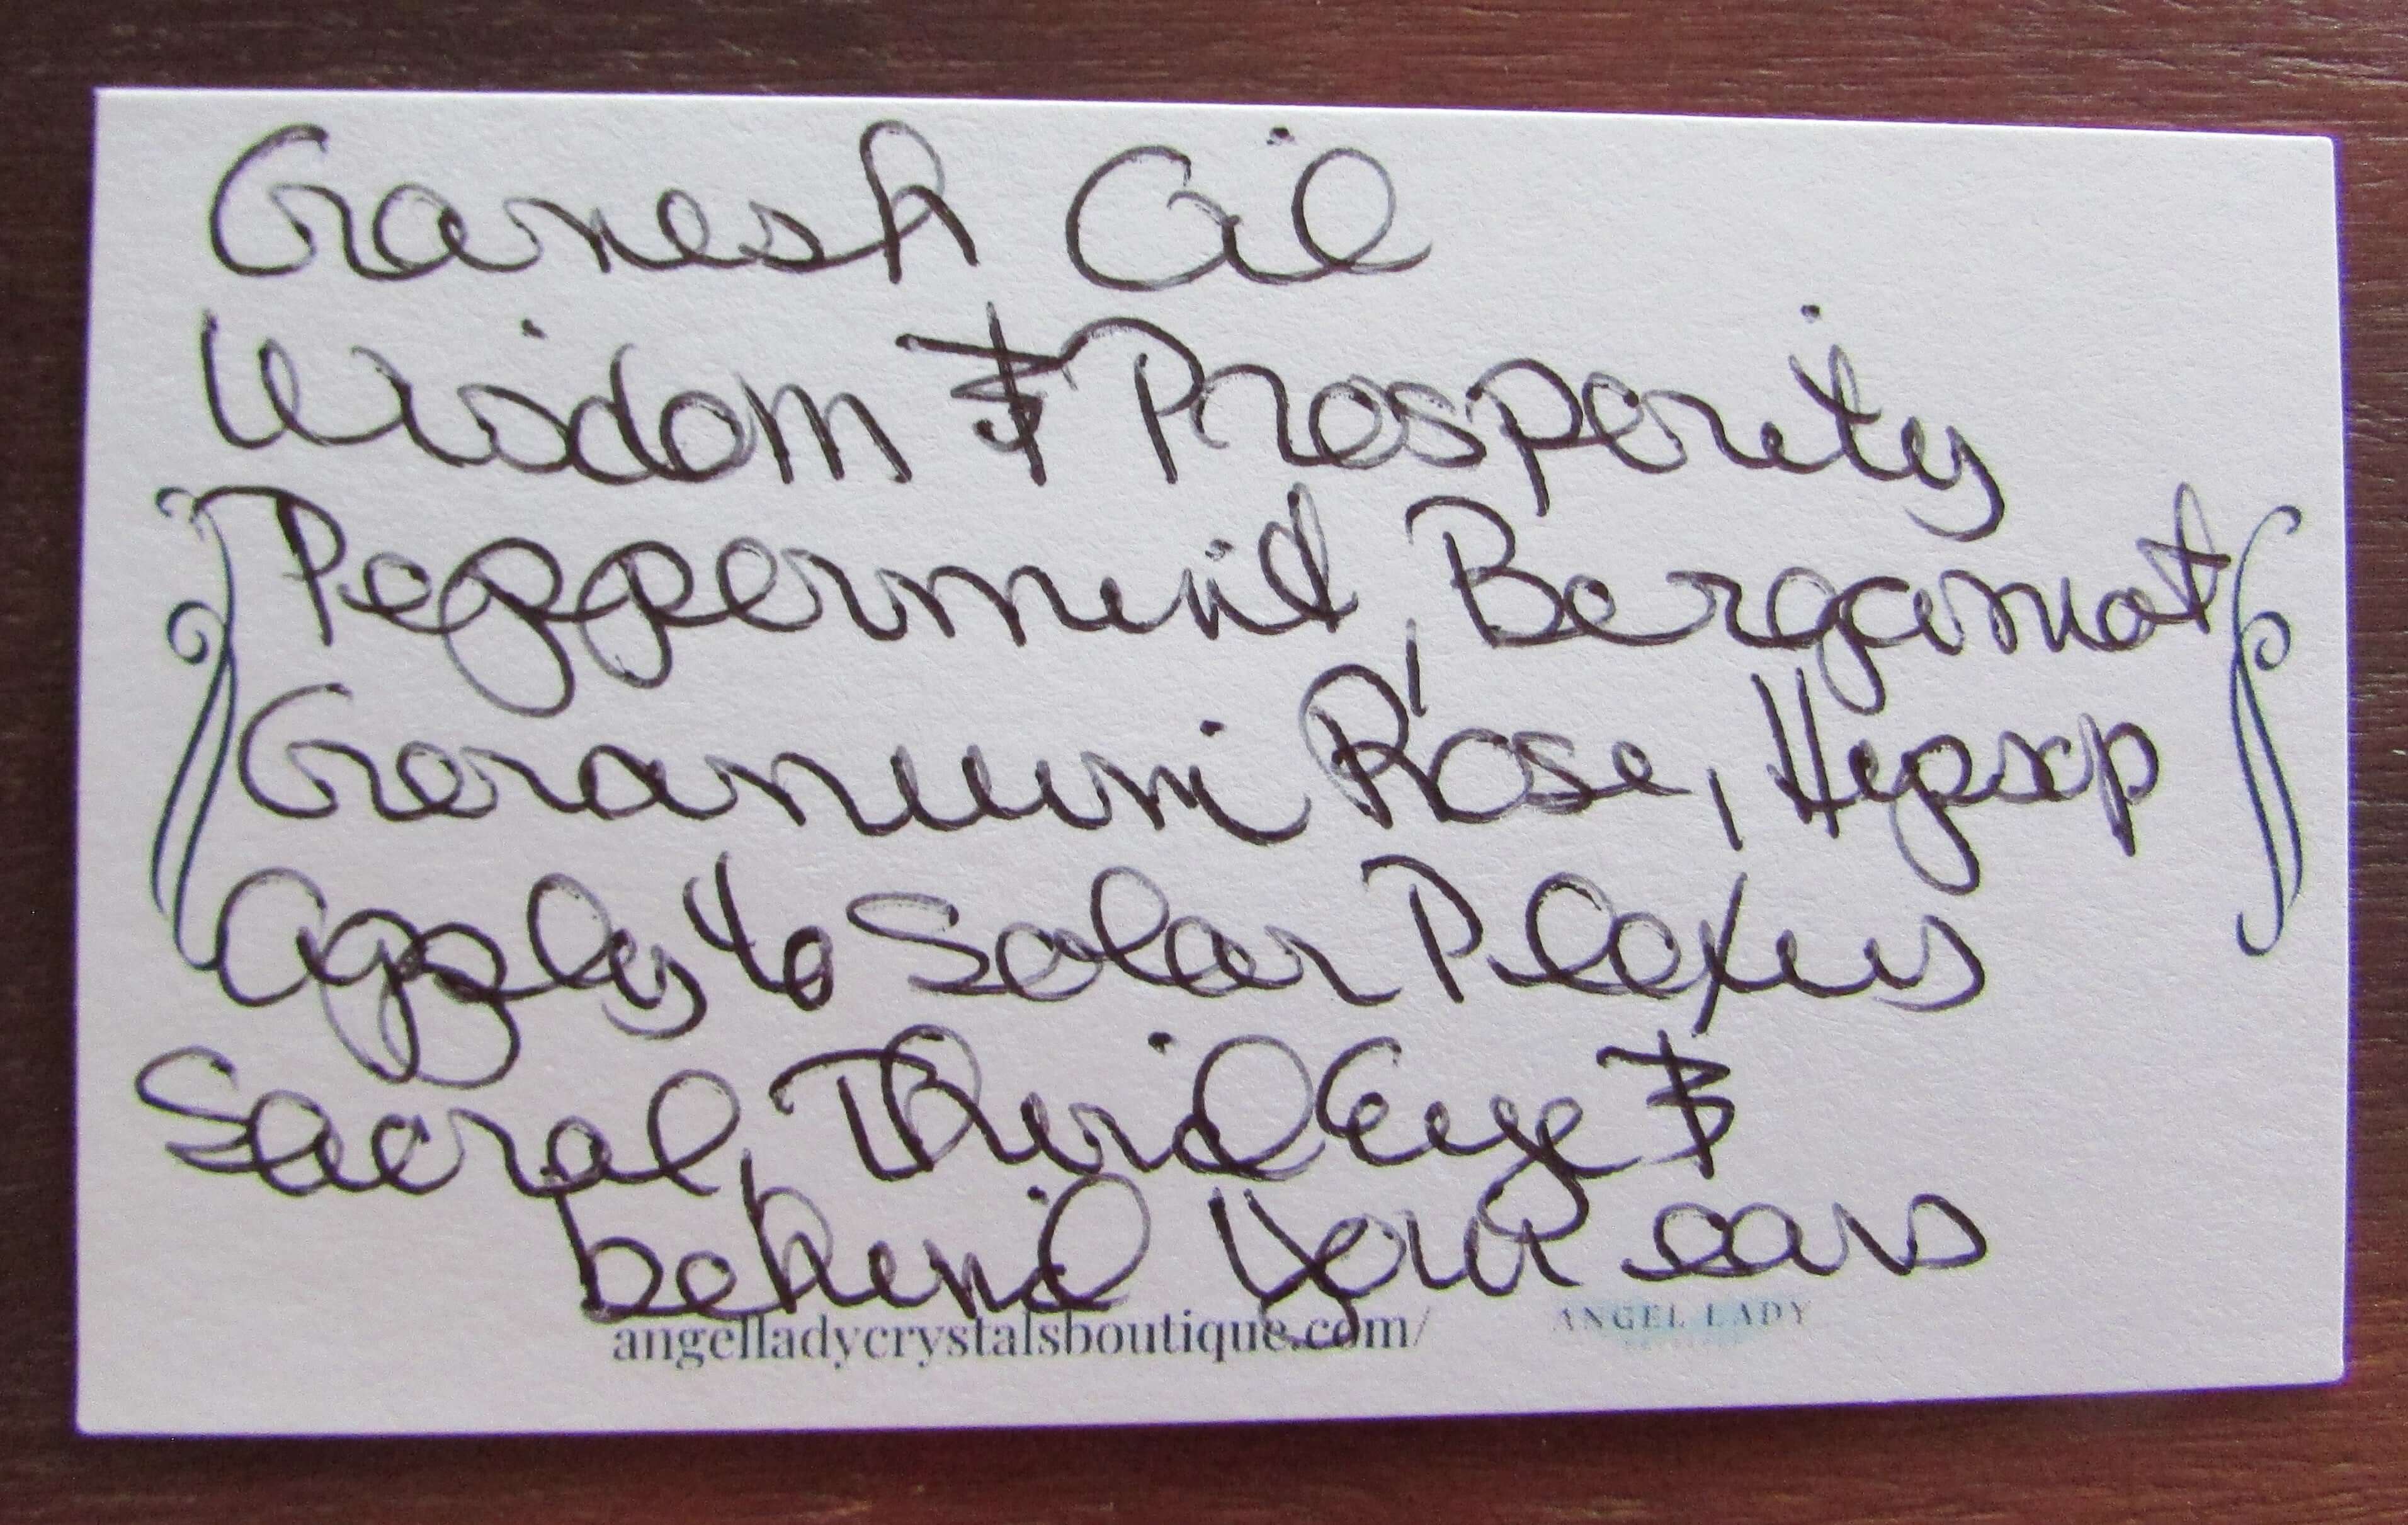 Ganesh Oil
Wisdom & Prosperity
Peppermint, Bergamot
Geranium Rose,
Apply to Solar Plexus
Sacral, Third Eye &
behind your ears
angelladycrystalsboutique.com/
ANGEL LADY